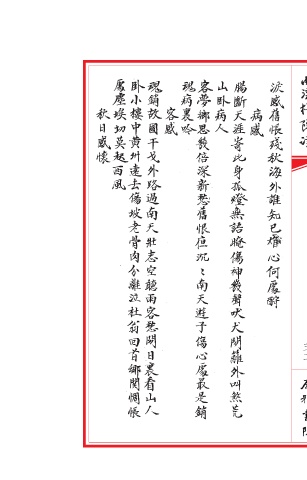 淚感舊悵殘秋海外誰知已癉心何處酹
病感
腸斷天涯寄此身孤燈無語腌傷神幾聲吠犬閑籬外叫煞荒
山卧病人
客夢鄉思幾倍深新愁舊恨痘沉沉南天遊子傷心處最是銷
魂病裏吟
客感
魂銷故國干戈外路過南天壯志空聽雨客愁閑日裏看山人
卧小樓中黃州遠去傷坡老骨肉分離泣杜翁回首鄉関惆悵
處塵埃切莫起西風
秋日感懷